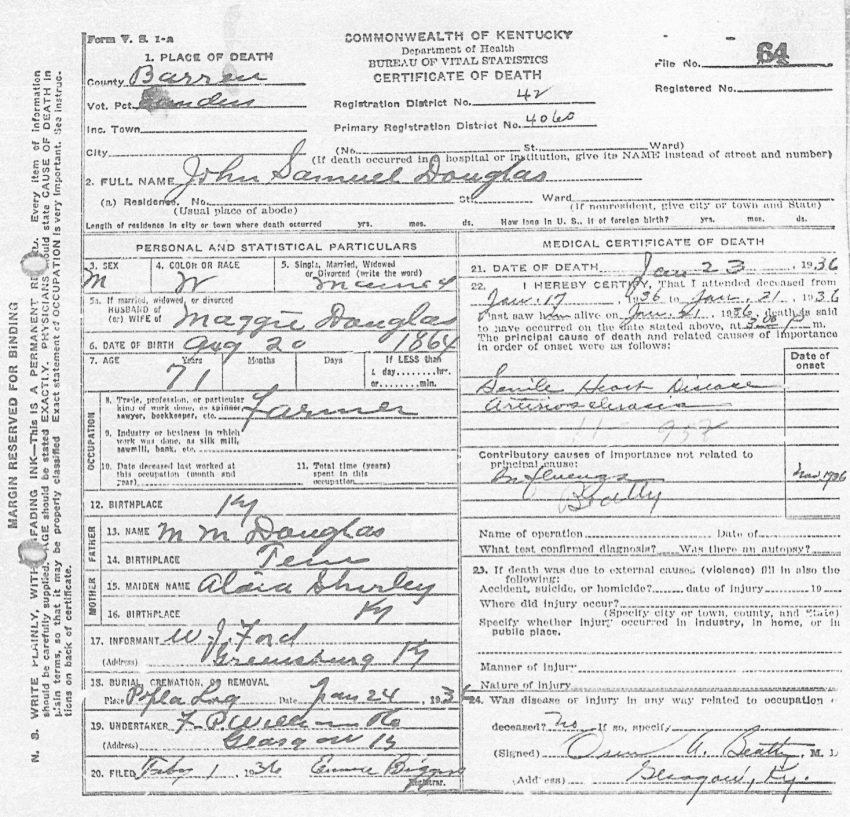 Form V. S. 1-a
COMMONWEALTH OF KENTUCKY
Department of Health
BUREAU OF VITAL STATISTICS
CERTIFICATE OF DEATH
File No. 64
Registered No.
1. PLACE OF DEATH
County Barren
Vot. Pct.
Inc. Town
City
Registration District No. 42
Primary Registration District No. 4060
(No. St. Ward)
(If death occurred in a hospital or institution, give its NAME instead of street and number)
2. FULL NAME John Samuel Douglas
(a) Residence. No. St. Ward
(Usual place of abode) (If nonresident, give city or town and State)
Length of residence in city or town where death occurred yrs. mos. ds. How long in U. S., if of foreign birth? yrs. mos. ds.
PERSONAL AND STATISTICAL PARTICULARS
3. SEX M
4. COLOR OR RACE W
5. Single, Married, Widowed
or Divorced (write the word)
5a. If married, widowed, or divorced
HUSBAND of
(or) WIFE of Maggie Douglas
6. DATE OF BIRTH Aug 20 1864
7. AGE Years Months Days If LESS than
71 1 day hr.
or min.
OCCUPATION
8. Trade, profession, or particular
kind of work done, as spinner
sawyer, bookkeeper, etc. Farmer
9. Industry or business in which
work was done, as silk mill,
sawmill, bank, etc.
10. Date deceased last worked at
this occupation (month and
year)
11. Total time (years)
spent in this
occupation
12. BIRTHPLACE Ky
FATHER
13. NAME M M Douglas
14. BIRTHPLACE Tenn
MOTHER
15. MAIDEN NAME Shirley
16. BIRTHPLACE Ky
17. INFORMANT W J Ford
(Address) Greensburg Ky
18. BURIAL, CREMATION, OR REMOVAL
Place Date Jan 24, 1936
19. UNDERTAKER
(Address) Glasgow Ky
20. FILED 1, 1936
Registrar.
MEDICAL CERTIFICATE OF DEATH
21. DATE OF DEATH Jan 23, 1936
22. I HEREBY CERTIFY, That I attended deceased from
Jan. 17, 1936 to Jan. 21, 1936
I last saw him alive on Jan. 21, 1936, death is said
to have occurred on the date stated above, at m.
The principal cause of death and related causes of importance
in order of onset were as follows:
Date of
onset
Senile Heart Disease
Contributory causes of importance not related to
principal cause:
Influenza
Name of operation Date of
What test confirmed diagnosis? Was there an autopsy?
23. If death was due to external causes (violence) fill in also the
following:
Accident, suicide, or homicide? date of injury 19
Where did injury occur?
(Specify city or town, county, and State)
Specify whether injury occurred in industry, in home, or in
public place.
Manner of injury
Nature of injury
24. Was disease or injury in any way related to occupation
deceased? No If so, specify
(Signed) Beatty, M. D
(Address) Glasgow, Ky.
MARGIN RESERVED FOR BINDING
N. B. WRITE PLAINLY, WITH UNFADING INK—THIS IS A PERMANENT Every item of information
should be carefully supplied. AGE should be stated EXACTLY. PHYSICIANS should state CAUSE OF DEATH in
plain terms, so that it may be properly classified. Exact statement of OCCUPATION is very important. See instruc-
tions on back of certificate.